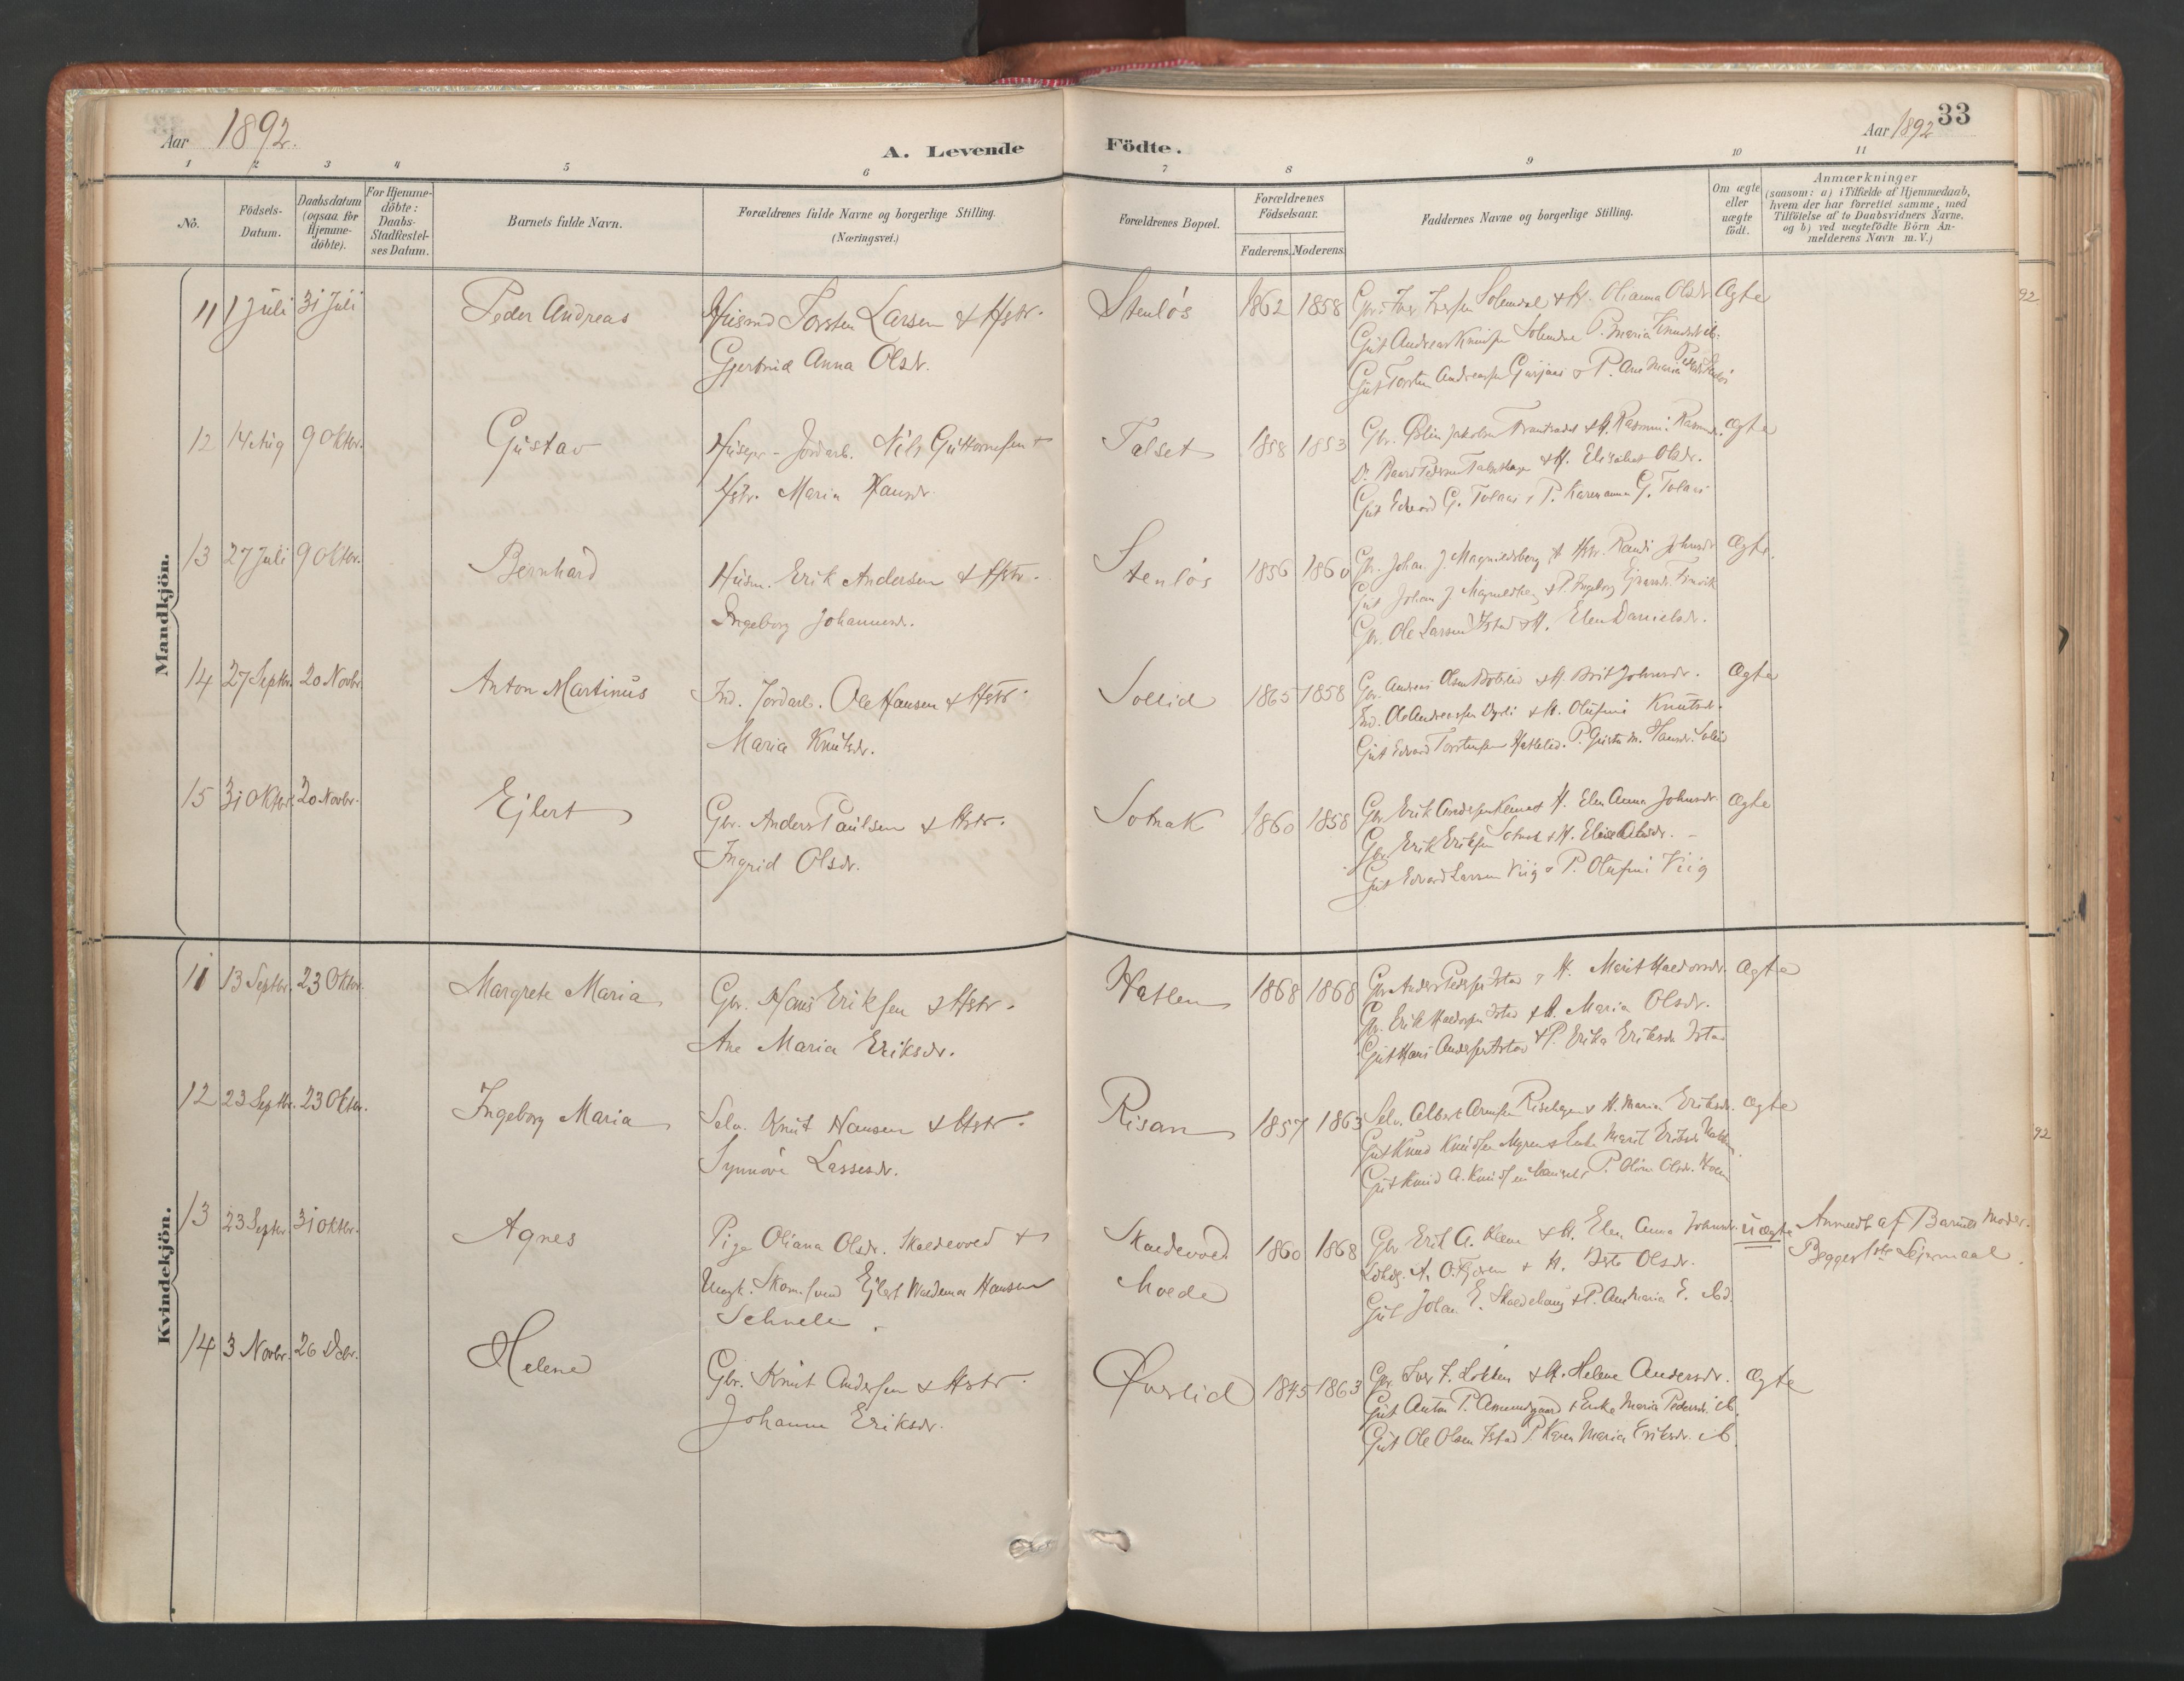 Aar 1892.
A. Levende
Födte.
Aar 1892
33
1 2 3 4 5 6 7 8 9 10 11
No.
Födsels-
Datum.
Daabsdatum
(ogsaa for
Hjemme-
döbte).
For Hjemme-
döbte:
Daabs-
Stadfæstel-
ses Datum.
Barnets fulde Navn.
Forældrenes fulde Navne og borgerlige Stilling.
(Næringsvei.)
Forældrenes Bopæl.
Forældrenes
Födselsaar.
Faderens. Moderens.
Faddernes Navne og borgerlige Stilling.
Om ægte
eller
uægte
födt.
Anmærkninger
(saasom: a) i Tilfælde af Hjemmedaab,
hvem der har forrettet samme, med
Tilföielse af to Daabsvidners Navne.
og b) ved uægtefödte Börn An-
melderens Navn m. V.)
Mandkjön.
11 1 Juli 31 Juli Peder Andreas Husmd Torsten Larsen & Hstr.
Gjertrud Anna Olsdr.
Stenlös 1862 1858 Gbr. Iver Iversen Solemdal & H. Olianna Olsdr. Ægte
Gut Andreas Knudsen Solemdal P. Maria Knudsdr. ib.
Gut Torsten Andreassen & P. Ane Maria
12 14 Aug 9 Oktbr. Gustav Husgr - Jordarb. Nils Guttormsen &
Hstr. Maria Hansdr.
Talset 1858 1853 Gbr. Jakobsen & H. Rasmi Rasmd. Ægte
Baard Pedersen & H. Elisabet Olsdr.
Gut Edvard G. Tolaas & P. Karenanna G. Tolaas
13 27 Juli 9 Oktbr. Bernhard Husm. Erik Andersen & Hstr.
Ingeborg Johannesdr.
Stenlös 1856 1860 Gbr. Johan J. Magnildsberg & Hstr. Randi Johnsdr Ægte.
Gut Johan J. Magnildsberg & P. Ingeborg
Gbr. Ole Larsen Istad & H. Elen Danielsdr.
14 27 Septbr. 20 Novbr. Anton Martinus Ind. Jordarb. Ole Hansen & Hstr.
Maria Knutsdr.
Sollid 1865 1858 Gbr. Andreas Olsen & H. Brit Johnsdr. Ægte
Ind. Ole Andreassen & H. Olufine Knutsdr.
Gut Edvard Torstensen Hatlelid. P. M. Hansdr. Sollid
15 31 Oktbr. 20 Novbr. Ejlert Gbr. Anders Paulsen & Hstr.
Ingrid Olsdr.
Sotnak 1860 1858 Gbr. Erik Andersen & H. Elen Anna Johnsdr. Ægte
Gbr. Erik Eriksen Sotnak & H. Elise Olsdr.
Gut Edvard Larsen Viig & P. Olufine Viig
Kvindekjön.
11 13 Septbr. 23 Oktbr. Margrete Maria Gbr. Hans Eriksen & Hstr.
Ane Maria Eriksdr.
Hatlen 1868 1868 Gbr Anders Pedersen Istad & H. Marit Haldorsdr. Ægte
Gbr. Erik Haldorsen Istad & H. Maria Olsdr.
Gut Hans Andersen Istad & P. Erika Eriksdr Istad
12 23 Septbr. 23 Oktbr. Ingeborg Maria Selv. Knut Hansen & Hstr.
Synnöve Lassesdr.
Risan 1857 1863 Selv. Albert & H. Maria Eriksdr. Ægte
Gut Knud Knudsen & Enke Marit Eriksdr
Gut Knud A. Knudsen P. Oline Olsdr.
13 23 Septbr. 31 Oktbr. Agnes Pige Oliana Olsdr. Skaldevoed &
Ungk. Skom.svend Ejlert Waldemar Hansen
Schnell.
Skaldevoed
Molde
1860 1868 Gbr Erik A. Klem & H. Elen Anna Johnsdr. uægte Anmeldt af Barnets Moder.
& H. Olsdr. Begges 1ste Lejermaal.
Gut Johan E. Skaldehaug & P. Ane Maria E. ibd.
14 3 Novbr. 26 Debr. Helene Gbr. Knut Andersen & Hstr.
Johanne Eriksdr.
Överlid 1845 1863 Gbr. Iver I. Lokken & H. Helene Andersdr. Ægte
Gut Anton P. Amundgaard & Enke Maria Pedersdr. ib.
Gut Ole Olsen Istad P. Karen Maria Eriksdr. ib.
92
92